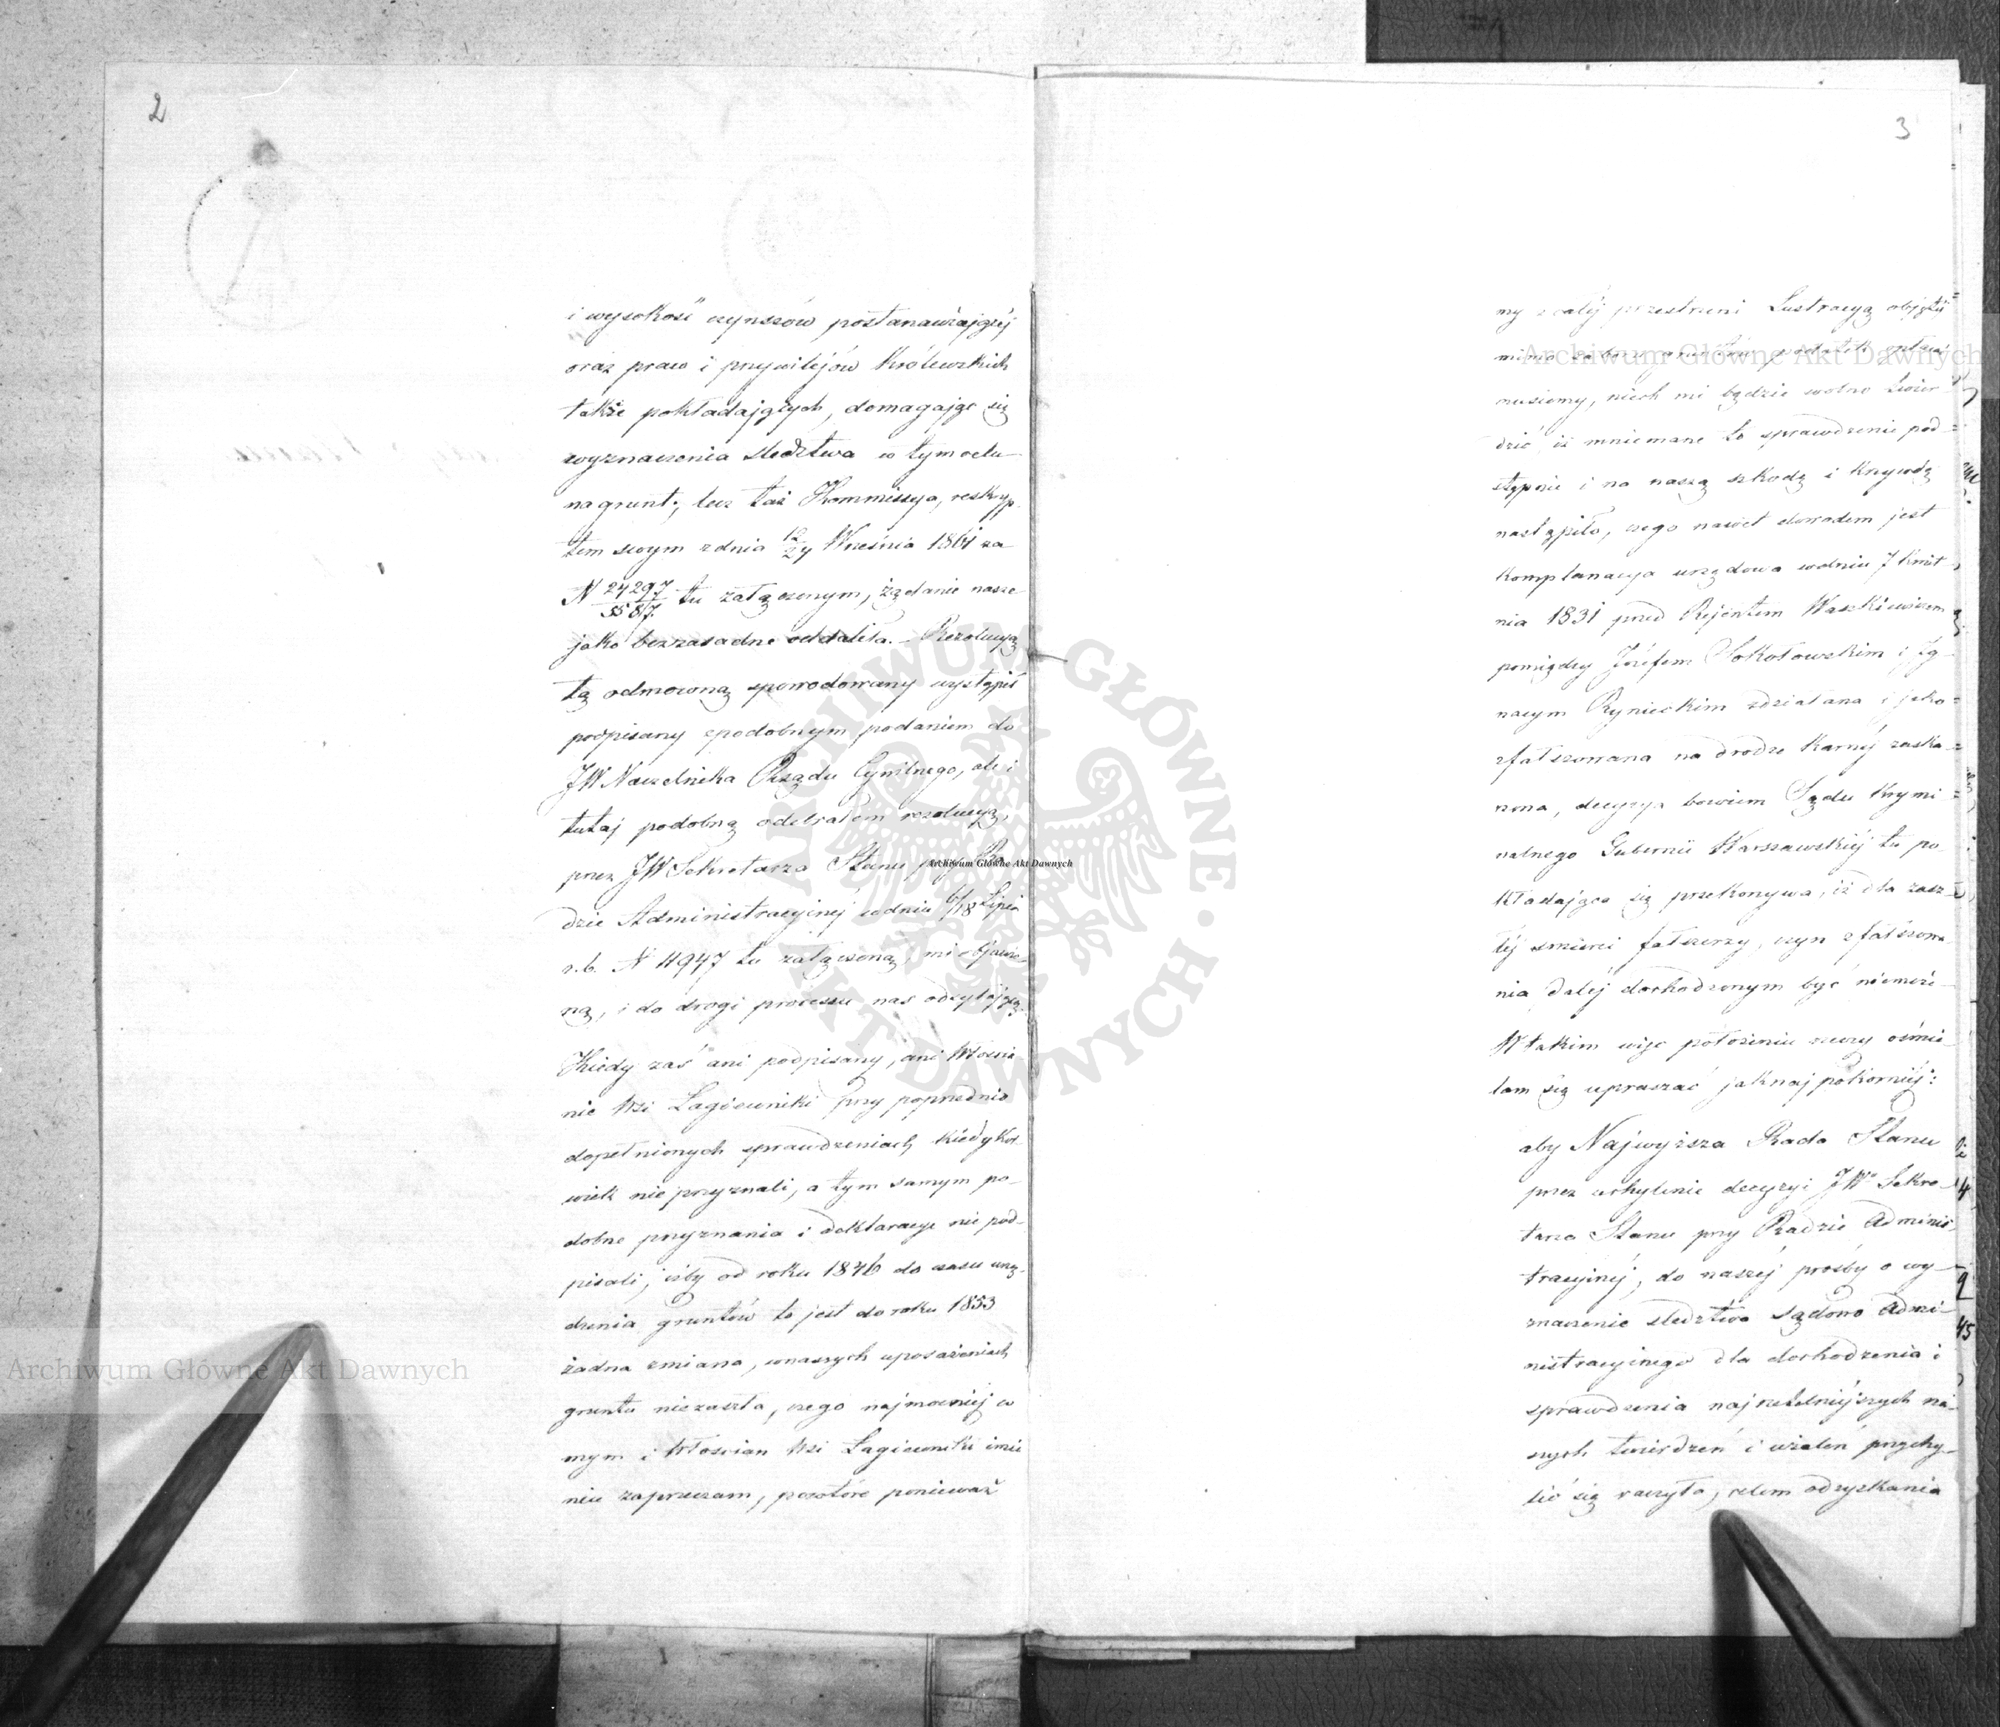 2
i wysokość czynszów postanawiającej
oraz praw i przywilejów Królewskich
także pokładających, domagając się
wyznaczenia śledztwa w tym celu
na grunt; lecz taż Kommissya, reskryp
tem swym z dnia 12/24 Września 1861 za
N 24297/5587 tu załączonym, żądanie nasze
jako bezzasadne oddaliła. Rezolucyą
tą odmowną spowodowany wystąpił
podpisany z podobnym podaniem do
JW Naczelnika Rządu Cywilnego, ale i
tutaj podobną odebrałem rezolucyą,
przez JW Sekretarza Stanu przy Ra
dzie Administracyjnej w dniu 6/18 Lipca
r. b. N 11947 tu załączoną, mi objawio
ną, i do drogi processu nas odsyłającą.
Kiedy zaś ani podpisany, ani Włościa
nie Wsi Łagiewniki przy poprzednio
dopełnionych sprawdzeniach kiedykol
wiek nie przyznali, a tym samym po-
dobne przyznania i deklaracye nie pod-
pisali, iżby od roku 1846 do czasu urzą-
dzenia gruntów to jest do roku 1853
żadna zmiana, w naszych uposażeniach
gruntu nie zaszła, czego najmocniej w
mym i Włościan Wsi Łagiewniki imie
niu zaprzeczam, powtóre ponieważ
3
my z całej przestrzeni Lustracyą objętej
mimo zaboru gruntów podatek opłacać
musiemy, niech mi będzie wolno twier
dzić iż mniemane to sprawdzenie pod-
stępnie i na naszą szkodę i krzywdę
nastąpiło, czego nawet dowodem jest
komplanacya urzędowa w dniu 7 Kwiet
nia 1831 przed Rejentem Waszkiewiczem
pomiędzy Józefem Sokołowskim i Ig-
nacym Rynieckim zdziałana i jako
sfałszowana na drodze karnej zaska-
rzona, decyzya bowiem Sądu Krymi
nalnego Gubernii Warszawskiej tu po
kładająca się przekonywa, iż dla zasz-
łej śmierci fałszerzy, czyn sfałszowa
nia dalej dochodzonym być niemoże.
W takim więc położeniu rzeczy ośmie
lam się upraszać jaknajpokorniej:
aby Najwyższa Rada Stanu
przez uchylenie decyzyi JW Sekre-
tarza Stanu przy Radzie Adminis-
tracyjnej, do naszej prośby o wy-
znaczenie śledztwa Sądowo Admi-
nistracyjnego dla dochodzenia i
sprawdzenia najrzetelniejszych na-
szych twierdzeń i użaleń przychy-
lić się raczyła, celem odzyskania
Archiwum Główne Akt Dawnych
Archiwum Główne Akt Dawnych
Archiwum Główne Akt Dawnych
ARCHIWUM GŁÓWNE · AKT DAWNYCH ·